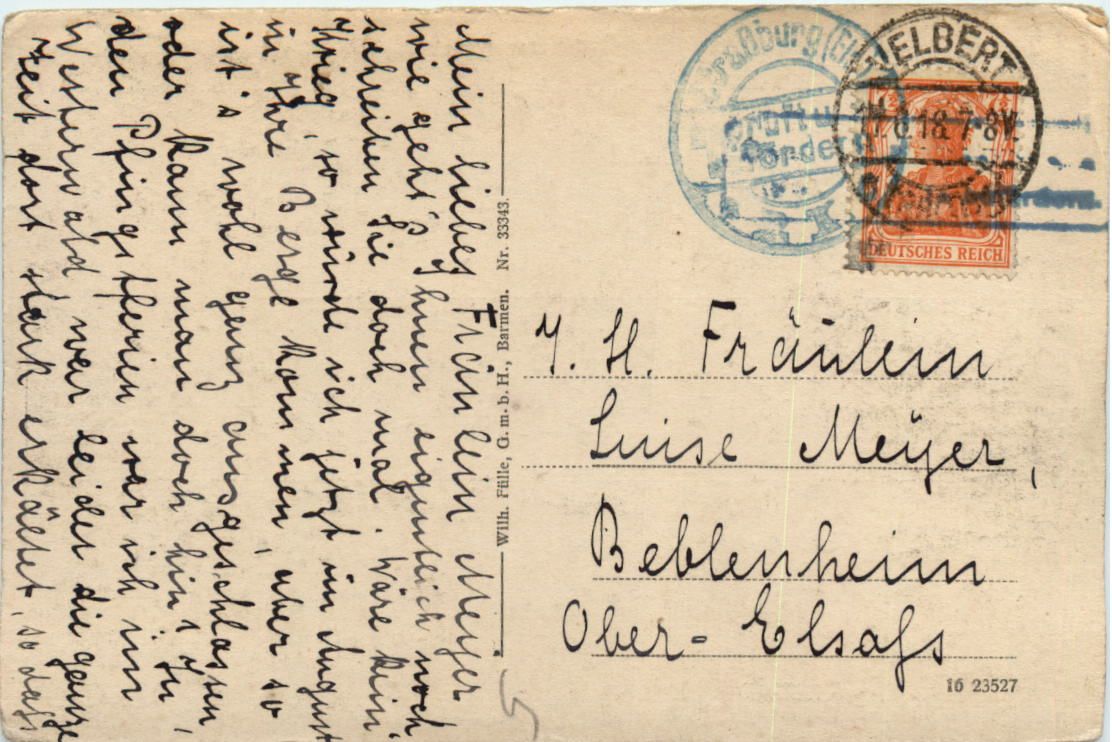 Mein liebes Fräulein Meyer
wie geht's Ihnen eigentlich noch
schreiben Sie doch mal. Wäre kein
Krieg, so würde ich jetzt im August
in Ihre Berge kommen, aber so
ist's wohl ganz ausgeschlossen,
oder kann man doch hin? In
den Pfingstferien war ich im
Westerwald war leider die ganze
Zeit dort stark erkältet, so dass
Wilh. Fülle, G. m. b. H., Barmen. Nr. 33343.
Straßburg (Els.)
VELBERT
8.18.7-8V.
DEUTSCHES REICH
J. H. Fräulein
Luise Meÿer,
Beblenheim
Ober-Elsaſs
16 23527